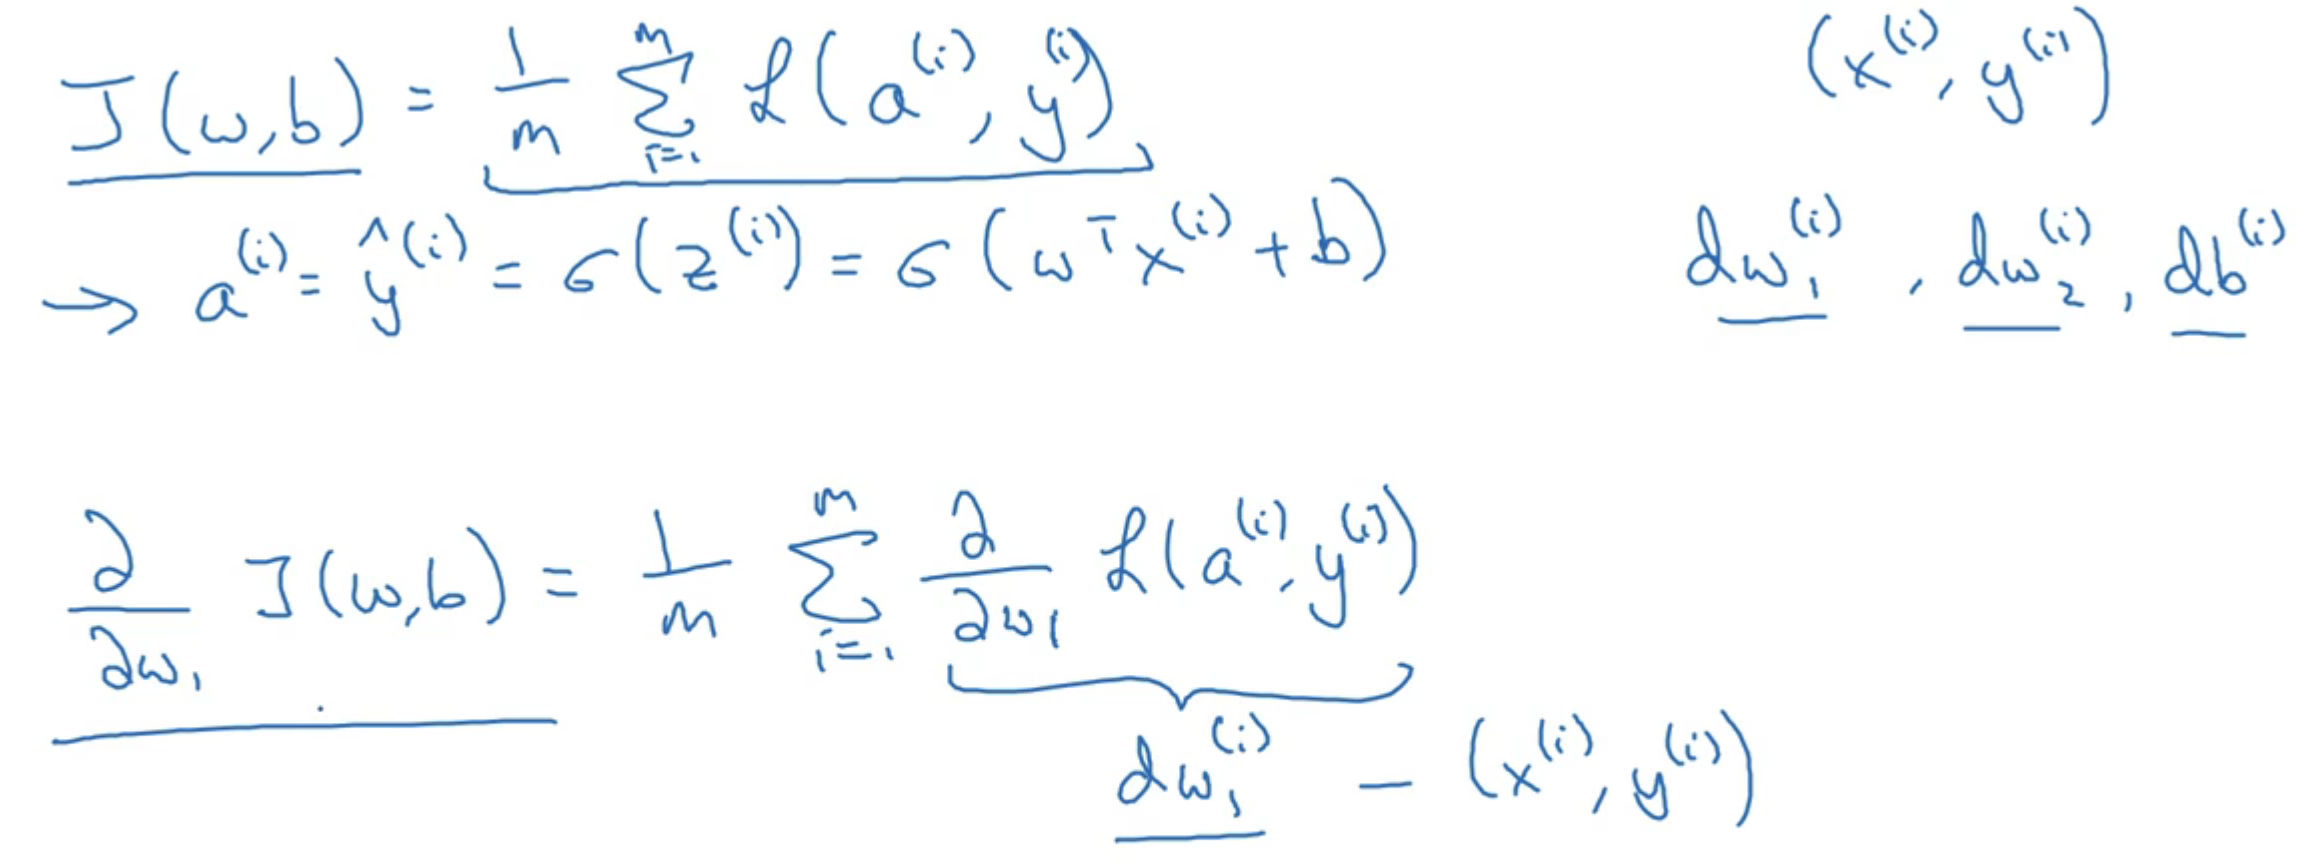 J(w,b) = 1/m ∑_{i=1}^{m} ℒ(a^{(i)}, y^{(i)})
(x^{(i)}, y^{(i)})
→ a^{(i)} = ŷ^{(i)} = σ(z^{(i)}) = σ(w^T x^{(i)} + b)
dw_1^{(i)}, dw_2^{(i)}, db^{(i)}
∂/∂w_1 J(w,b) = 1/m ∑_{i=1}^{m} ∂/∂w_1 ℒ(a^{(i)}, y^{(i)})
dw_1^{(i)} — (x^{(i)}, y^{(i)})